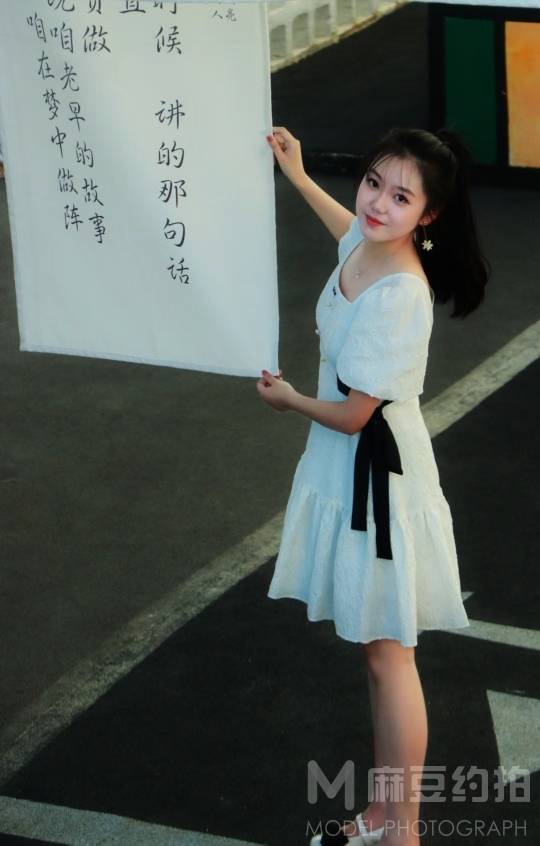 候 讲的那句话
做
咱老早的故事
咱在梦中做阵
麻豆约拍
MODEL PHOTOGRAPH